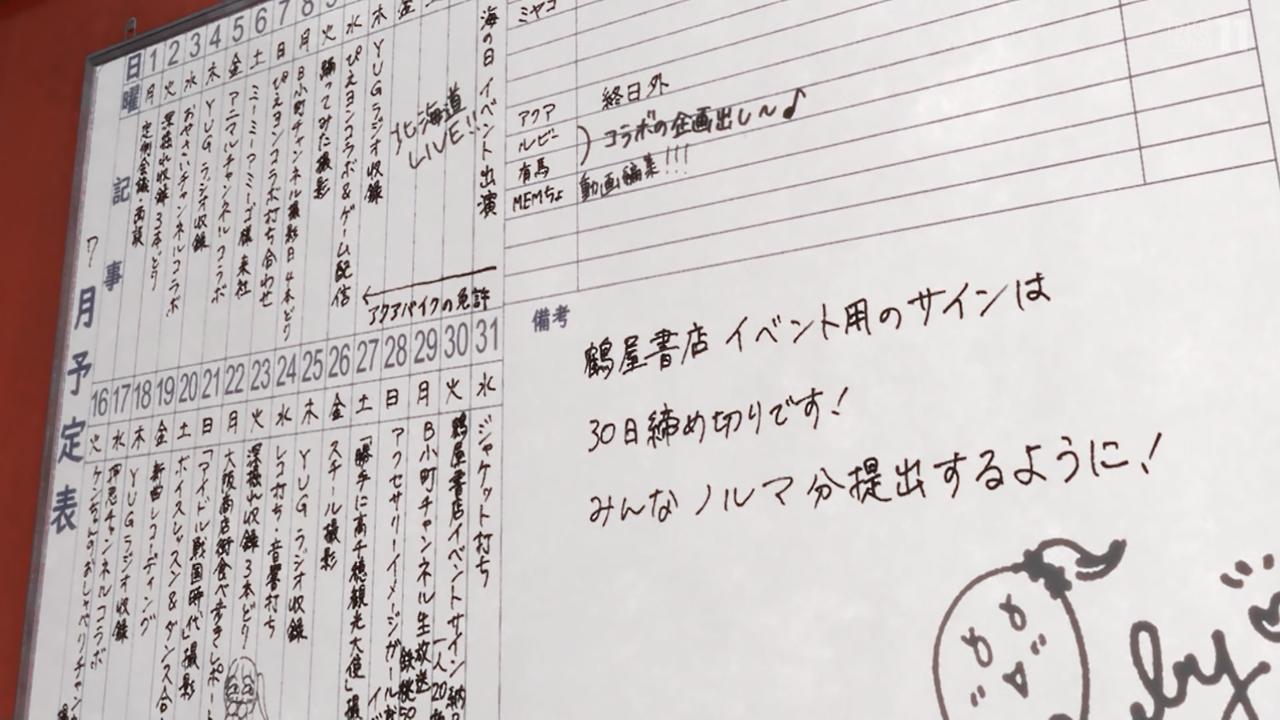 7月予定表
日 曜 記 事
1 月 定例会議・両

2 火 深掘れ収録3本どり
3 水 おやさいチャンネルコラボ
4 木 YUGラジオ収録
5 金 アニマルチャンネルコラボ
6 土 ミーミーマミーゴ様来社
7 日 ぴえヨンコラボ打ち合わせ
8 月 B小町チャンネル撮影日4本どり
火 踊ってみた撮影
水 ぴえヨンコラボ&ゲーム配信
木 YUGラジオ収録
金
北海道
LIVE!!
海の日イベント出演
アクアバイクの免許
16 火 ケンちゃんのおしゃべりチャン
17 水 押忍チャンネルコラボ
18 木 YUGラジオ収録
19 金 新曲レコーディング
20 土 ボイスレッスン&ダンス合
21 日 「アイドル戦国時代」撮影
22 月 大阪商店街食べ歩きレポート
23 火 深掘れ収録3本どり
24 水 レコ打ち・音響打ち
25 木 YUGラジオ収録
26 金 スチール撮影
27 土 「勝手に高千穂観光大使」撮
28 日 アクセサリーイメージガール
29 月 B小町チャンネル生放送
30 火 鶴屋書店イベントサイン納
一人20
31 水 ジャケット打ち
ミヤコ
アクア 終日外
ルビー
有馬
コラボの企画出し〜♪
MEMちょ 動画編集!!!
備考
鶴屋書店イベント用のサインは
30日締め切りです!
みんなノルマ分提出するように!
BS11